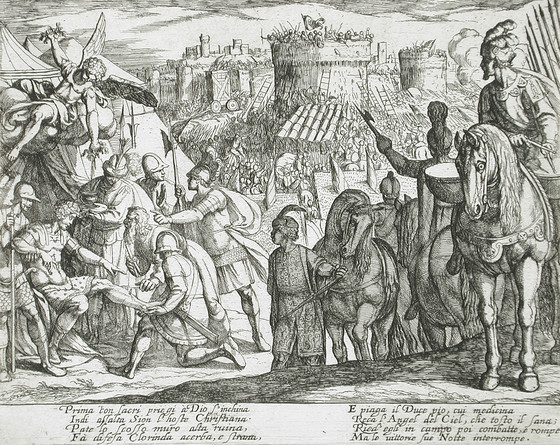 Prima con sacri priegi à Dio s'inchina
Indi assalta Sion l'hoste Christiana:
Pate lo scosso muro alta ruina,
Fà difesa Clorinda acerba, e strana.
E piaga il Duce pio, cui medicina
Reca l'Angel del Ciel, che tosto il sana.
Ried' egli in campo poi combatte, e rompe
Ma le vittorie sue Notte interrompe.